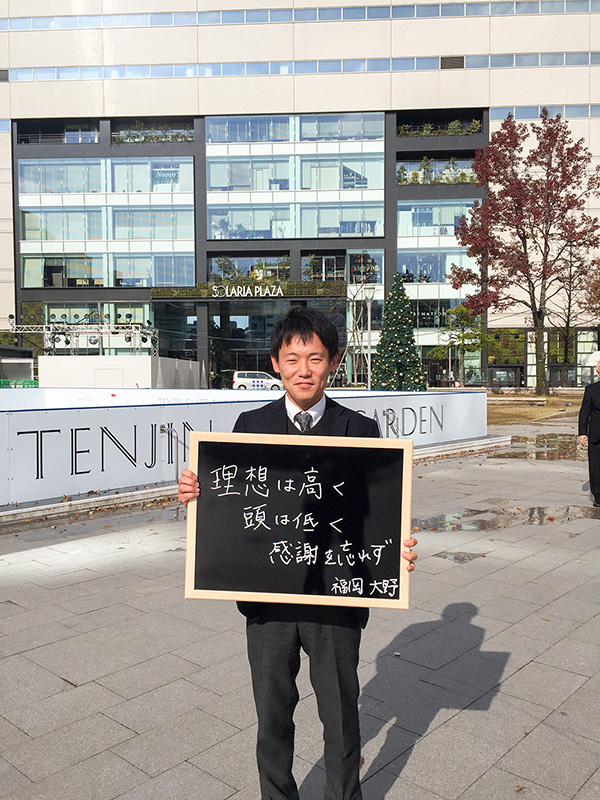 Nuovo
SOLARIA PLAZA
TENJIN GARDEN
理想は高く
頭は低く
感謝を忘れず
福岡 大野